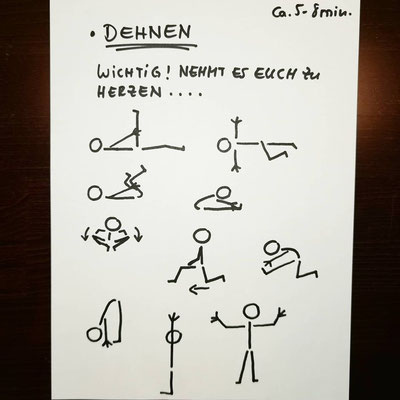 Ca. 5-8 min.
• DEHNEN
WICHTIG! NEHMT ES EUCH ZU
HERZEN ....